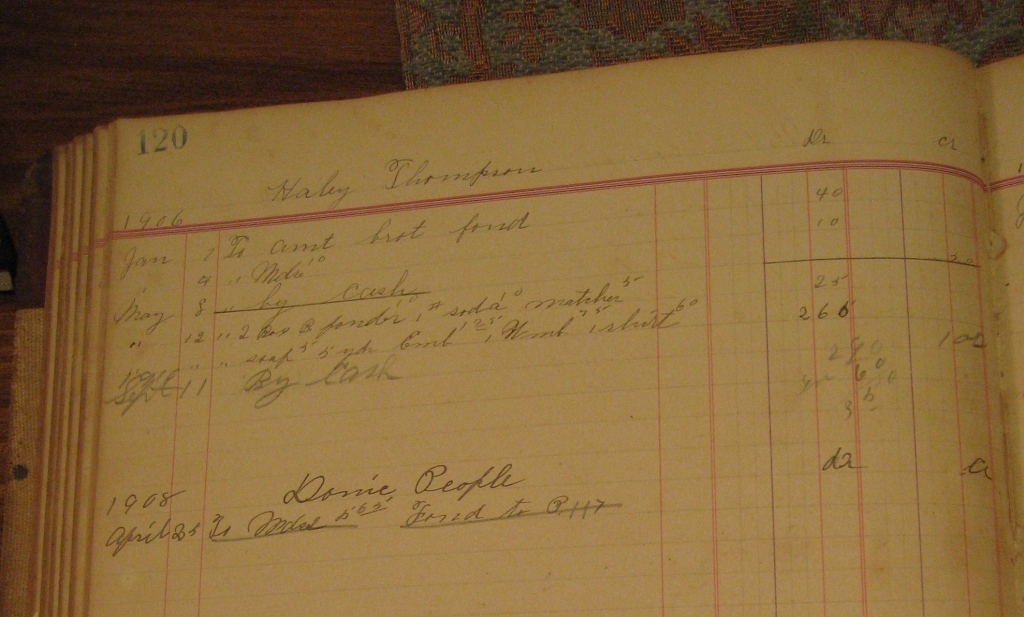 120
Dr Cr
Haley Thompson
1906
Jan 1 To amt brot forrd 40
9 " Mdse 10 10
May 8 " by cash 50
" 12 " 2 Box B ponder 10 1# soda 10 matches 5 25
" " " soap 5 5 yds Emb 1 25 1 Wmb 75 1 shirt 60 266
Sept 11 By Cash 100
290
60
dr cr
1908 Donie People
April 25 To Mdse Forrd to P. 117